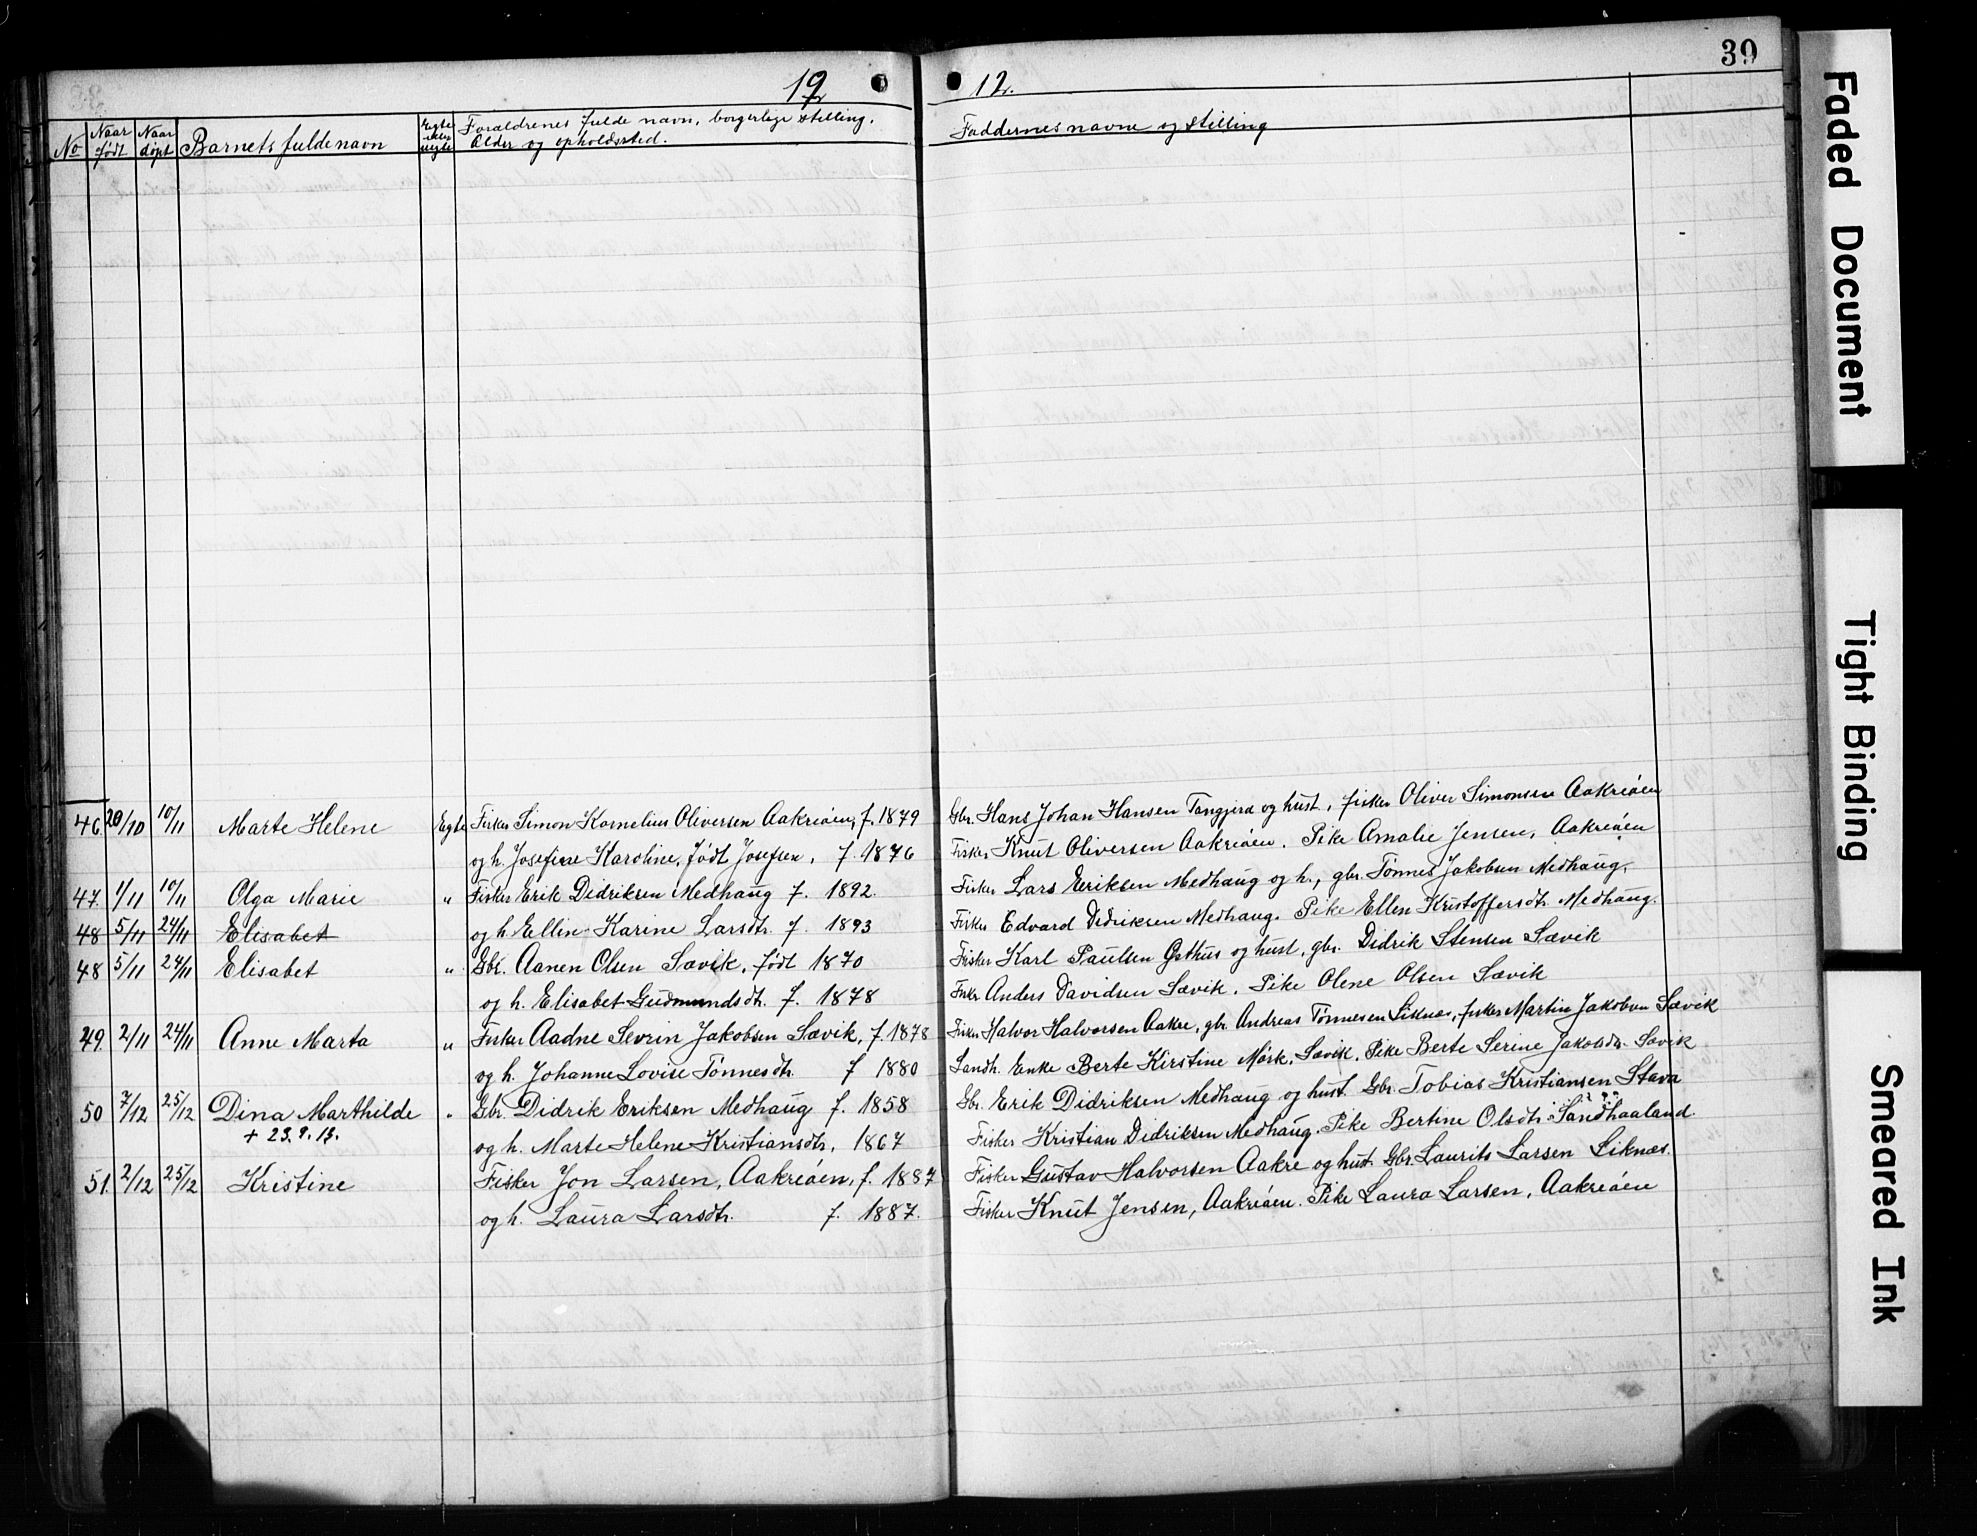 39
19 12.
No Naar født Naar døpt Barnets fulde navn Egte eller uegte Forældrenes fulde navn, borgerlige stilling, Alder og opholdssted. Faddernes navne og stilling
46 20/10 10/11 Marte Helene Egte Fisker Simon Kornelius Oliversen Aakreøen, f. 1879 Gbr. Hans Johan Hansen Tangjerd og hust, fisker Oliver Simonsen Aakreøen
og h. Josefine Karoline, født Josefsen, f. 1876 Fisker Knut Oliversen Aakreøen. Pike Amalie Jensen, Aakreøen
47 1/11 10/11 Olga Marie " Fisker Erik Didriksen Medhaug f. 1892 Fisker Lars Eriksen Medhaug og h, gbr. Tønnes Jakobsen Medhaug,
48 5/11 24/11 Elisabet og h. Ellin Karine Larsdtr. f. 1893 Fisker Edvard Didriksen Medhaug. Pike Ellen Kristoffersdtr Medhaug.
48 5/11 24/11 Elisabet " Gbr. Aanen Olsen Sævik, født 1870 Fisker Karl Paulsen Østhus og hust, gbr. Didrik Stensen Sævik
og h. Elisabet Gudmundsdtr. f. 1878 Fisker Anders Davidsen Sævik. Pike Olene Olsen Sævik
49 2/11 24/11 Anne Marta " Fisker Aadne Sevrin Jakobsen Sævik, f. 1878 Fisker Halvor Halvorsen Aakre, gbr. Andreas Tønnesen Liknes, fisker Martin Jakobsen Sævik
og h. Johanne Lovise Tønnesdtr. f 1880 Landh. Enke Berte Kirstine Mørk, Sævik. Pike Berte Serine Jakobsdtr. Sævik
50 7/12 25/12 Dina Marthilde " Gbr. Didrik Eriksen Medhaug f. 1858 Gbr. Erik Didriksen Medhaug og hust. Gbr. Tobias Kristiansen Stava
+ 23.9.13. og h. Marte Helene Kristiansdtr. 1867 Fisker Kristian Didriksen Medhaug. Pike Bertine Olsdtr Sandhaaland.
51. 2/12 25/12 Kristine Fisker Jon Larsen, Aakreøen, f. 1887 Fisker Gustav Halvorsen Aakre og hust. Gbr. Laurits Larsen Liknæs.
og h. Laura Larsdtr. f. 1887. Fisker Knut Jensen, Aakreøen. Pike Laura Larsen, Aakreøen
Faded Document
Tight Binding
Smeared Ink